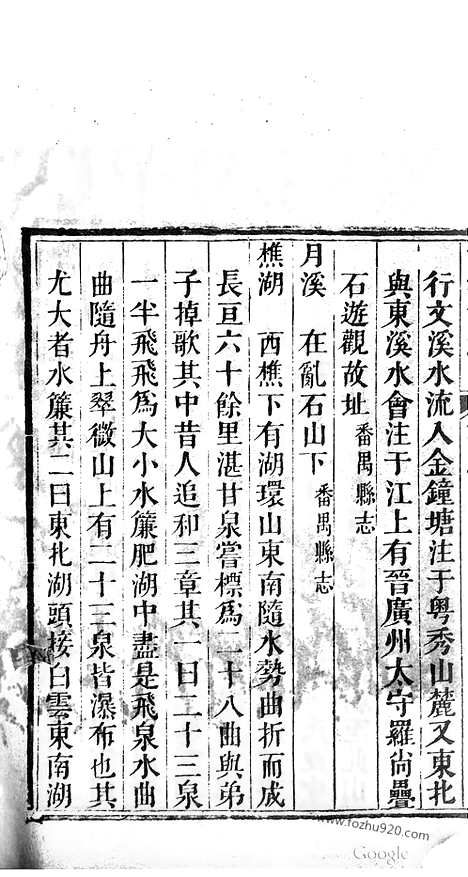 行文溪水流入金鐘塘注于粤秀山麓又東北
與東溪水會注于江上有晉廣州太守羅尙疊
石遊觀故址 番禺縣志
月溪 在亂石山下 番禺縣志
樵湖 西樵下有湖環山東南隨水勢曲折而成
長亘六十餘里湛甘泉嘗標爲二十八曲與弟
子掉歌其中昔人追和三章其一曰二十三泉
一半飛飛爲大小水簾肥湖中盡是飛泉水曲
曲隨舟上翠微山上有二十三泉皆瀑布也其
尤大者水簾其二曰東北湖頭接白雲東南湖
www.fozhu920.com
Google